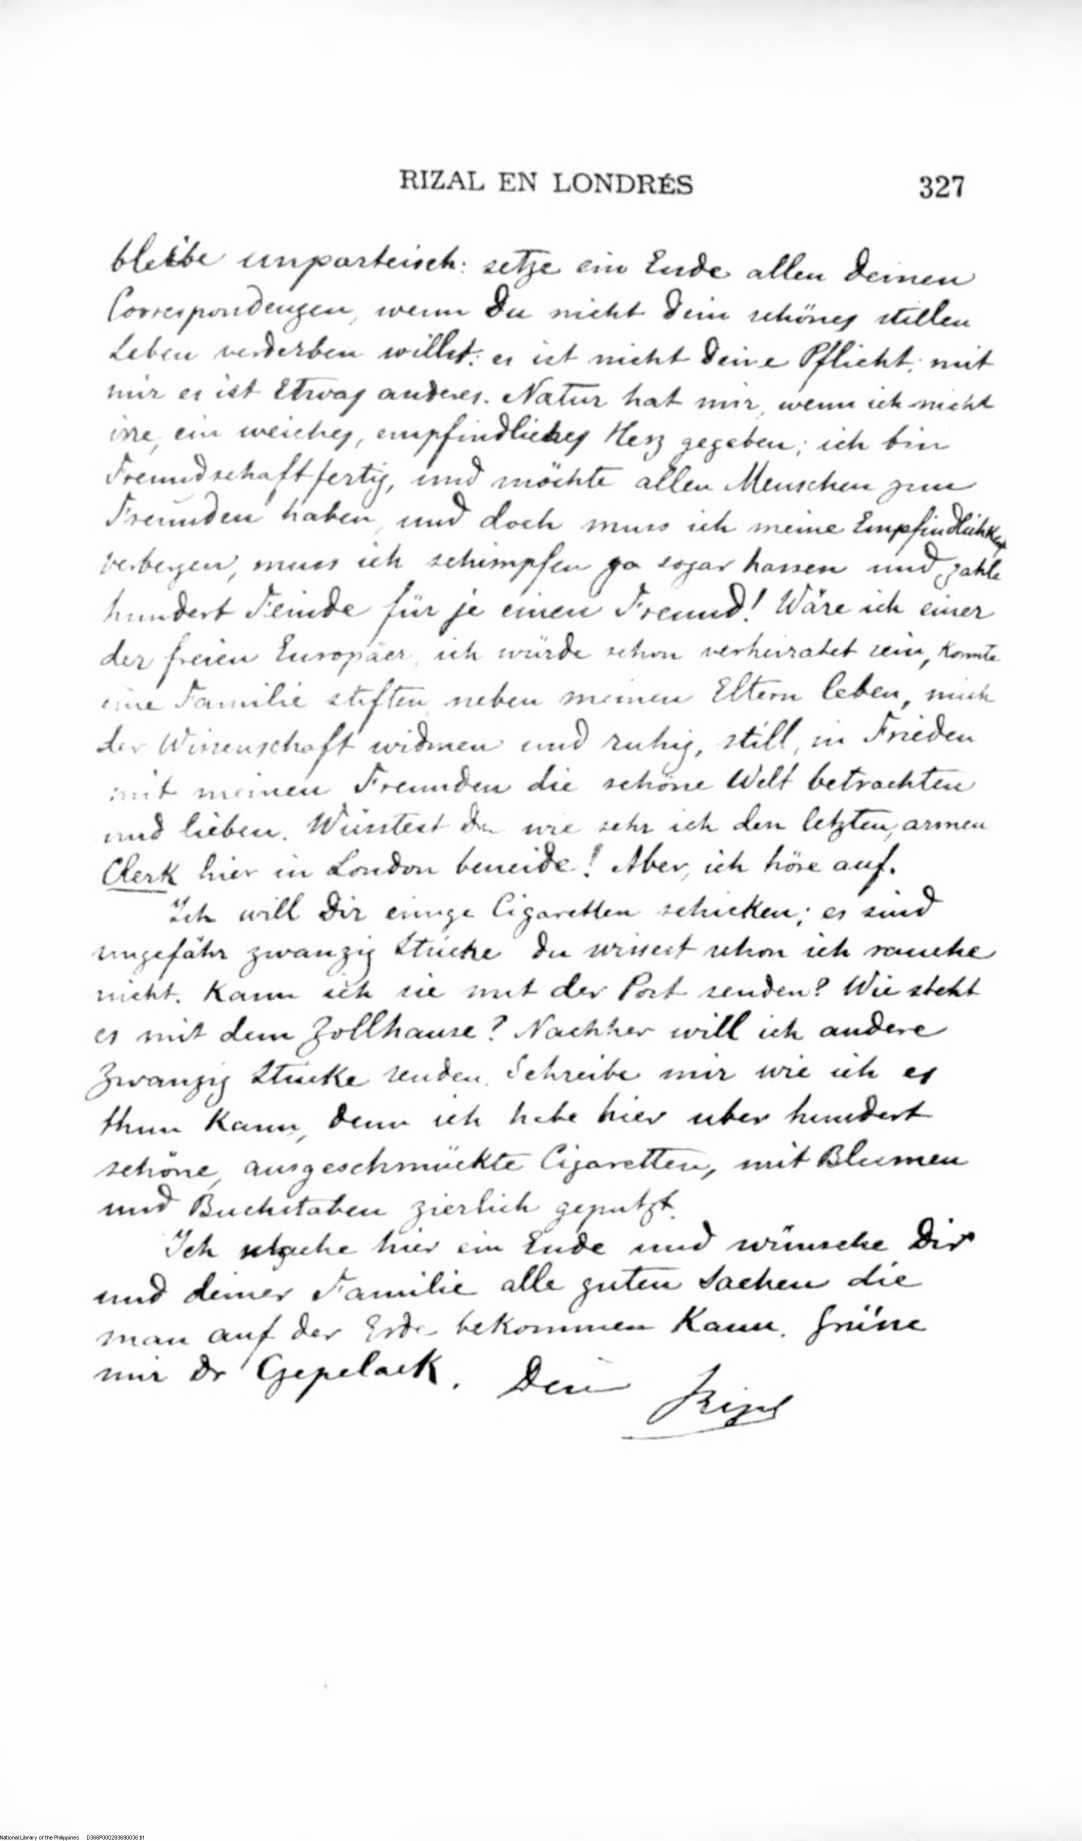 RIZAL EN LONDRÉS 327
bleibe unparteiisch: setze ein Ende allen deinen
Correspondenzen, wenn Du nicht Dein schönes stillen
Leben verderben willst: es ist nicht deine Pflicht; mit
mir es ist Etwas anderes. Natur hat mir, wenn ich nicht
irre, ein weiches, empfindliches Herz gegeben; ich bin
Freundschaftfertig, und möchte allen Menschen zum
Freunden haben, und doch muss ich meine Empfindlichkeit
verbergen, muss ich schimpfen ja sogar hassen und zahle
hundert Feinde für je einen Freund! Wäre ich einer
der freien Europäer, ich würde schon verheiratet sein, konnte
eine Familie stiften neben meinen Eltern leben, mich
der Wissenschaft widmen und ruhig, still, in Frieden
mit meinen Freunden die schöne Welt betrachten
und lieben. Wüsstest du wie sehr ich den letzten, armen
Clerk hier in London beneide! Aber, ich höre auf.
Ich will Dir einige Cigaretten schicken; es sind
ungefähr zwanzig Stücke Du wissest schon ich rauche
nicht. Kann ich sie mit der Post senden? Wie steht
es mit dem Zollhause? Nachher will ich andere
zwanzig Stucke senden. Schreibe mir wie ich es
thun kann, denn ich habe hier uber hundert
schöne, ausgeschmückte Cigaretten, mit Blumen
und Buchstaben zierlich geputzt.
Ich mache hier ein Ende und wünsche Dir
und deiner Familie alle guten Sachen die
man auf der Erde bekommen kann. Grüsse
mir Dr Czepelack. Dein Rizal
National Library of the Philippines